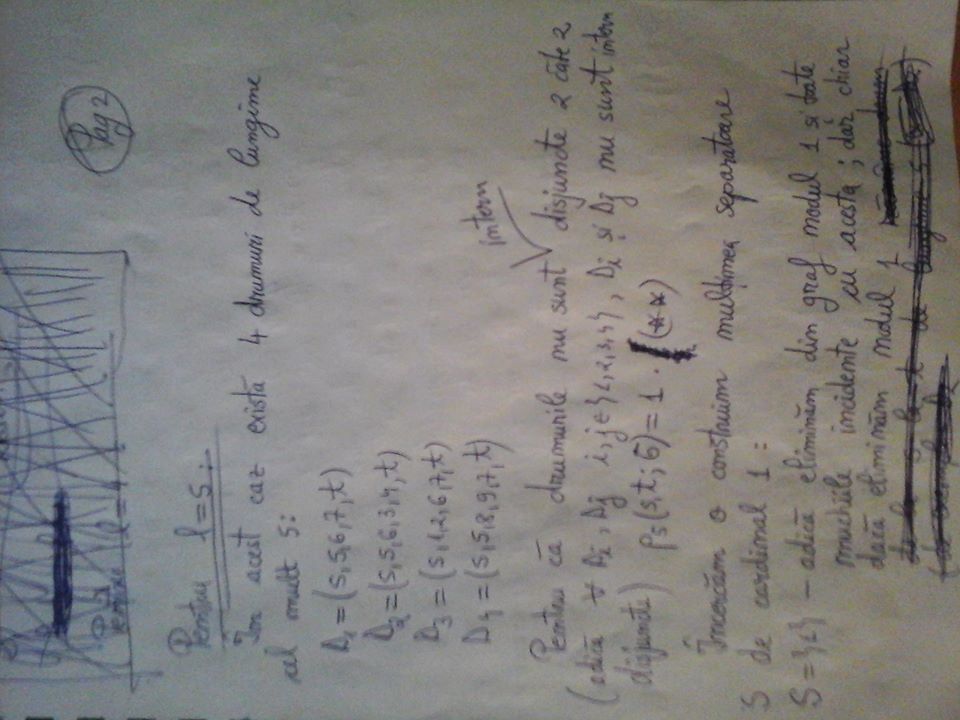 Pag 2
Pentru l=4
Pentru l=5:
În acest caz există 4 drumuri de lungime
cel mult 5:
D1=(s,5,6,7,t)
D2=(s,5,6,3,4,t)
D3=(s,1,2,6,7,t)
D4=(s,5,8,9,7,t)
intern
Pentru că drumurile nu sunt disjuncte 2 câte 2
(adică ∀ Di, Dj i,j∈{1,2,3,4}, Di și Dj nu sunt intern
disjuncte) ρ5(s,t;G)=1. (**)
Încercăm o construim mulțimea separatoare
S de cardinal 1:
S={1} – adică eliminăm din graf nodul 1 și toate
muchiile incidente cu acesta; dar chiar
dacă eliminăm nodul 1